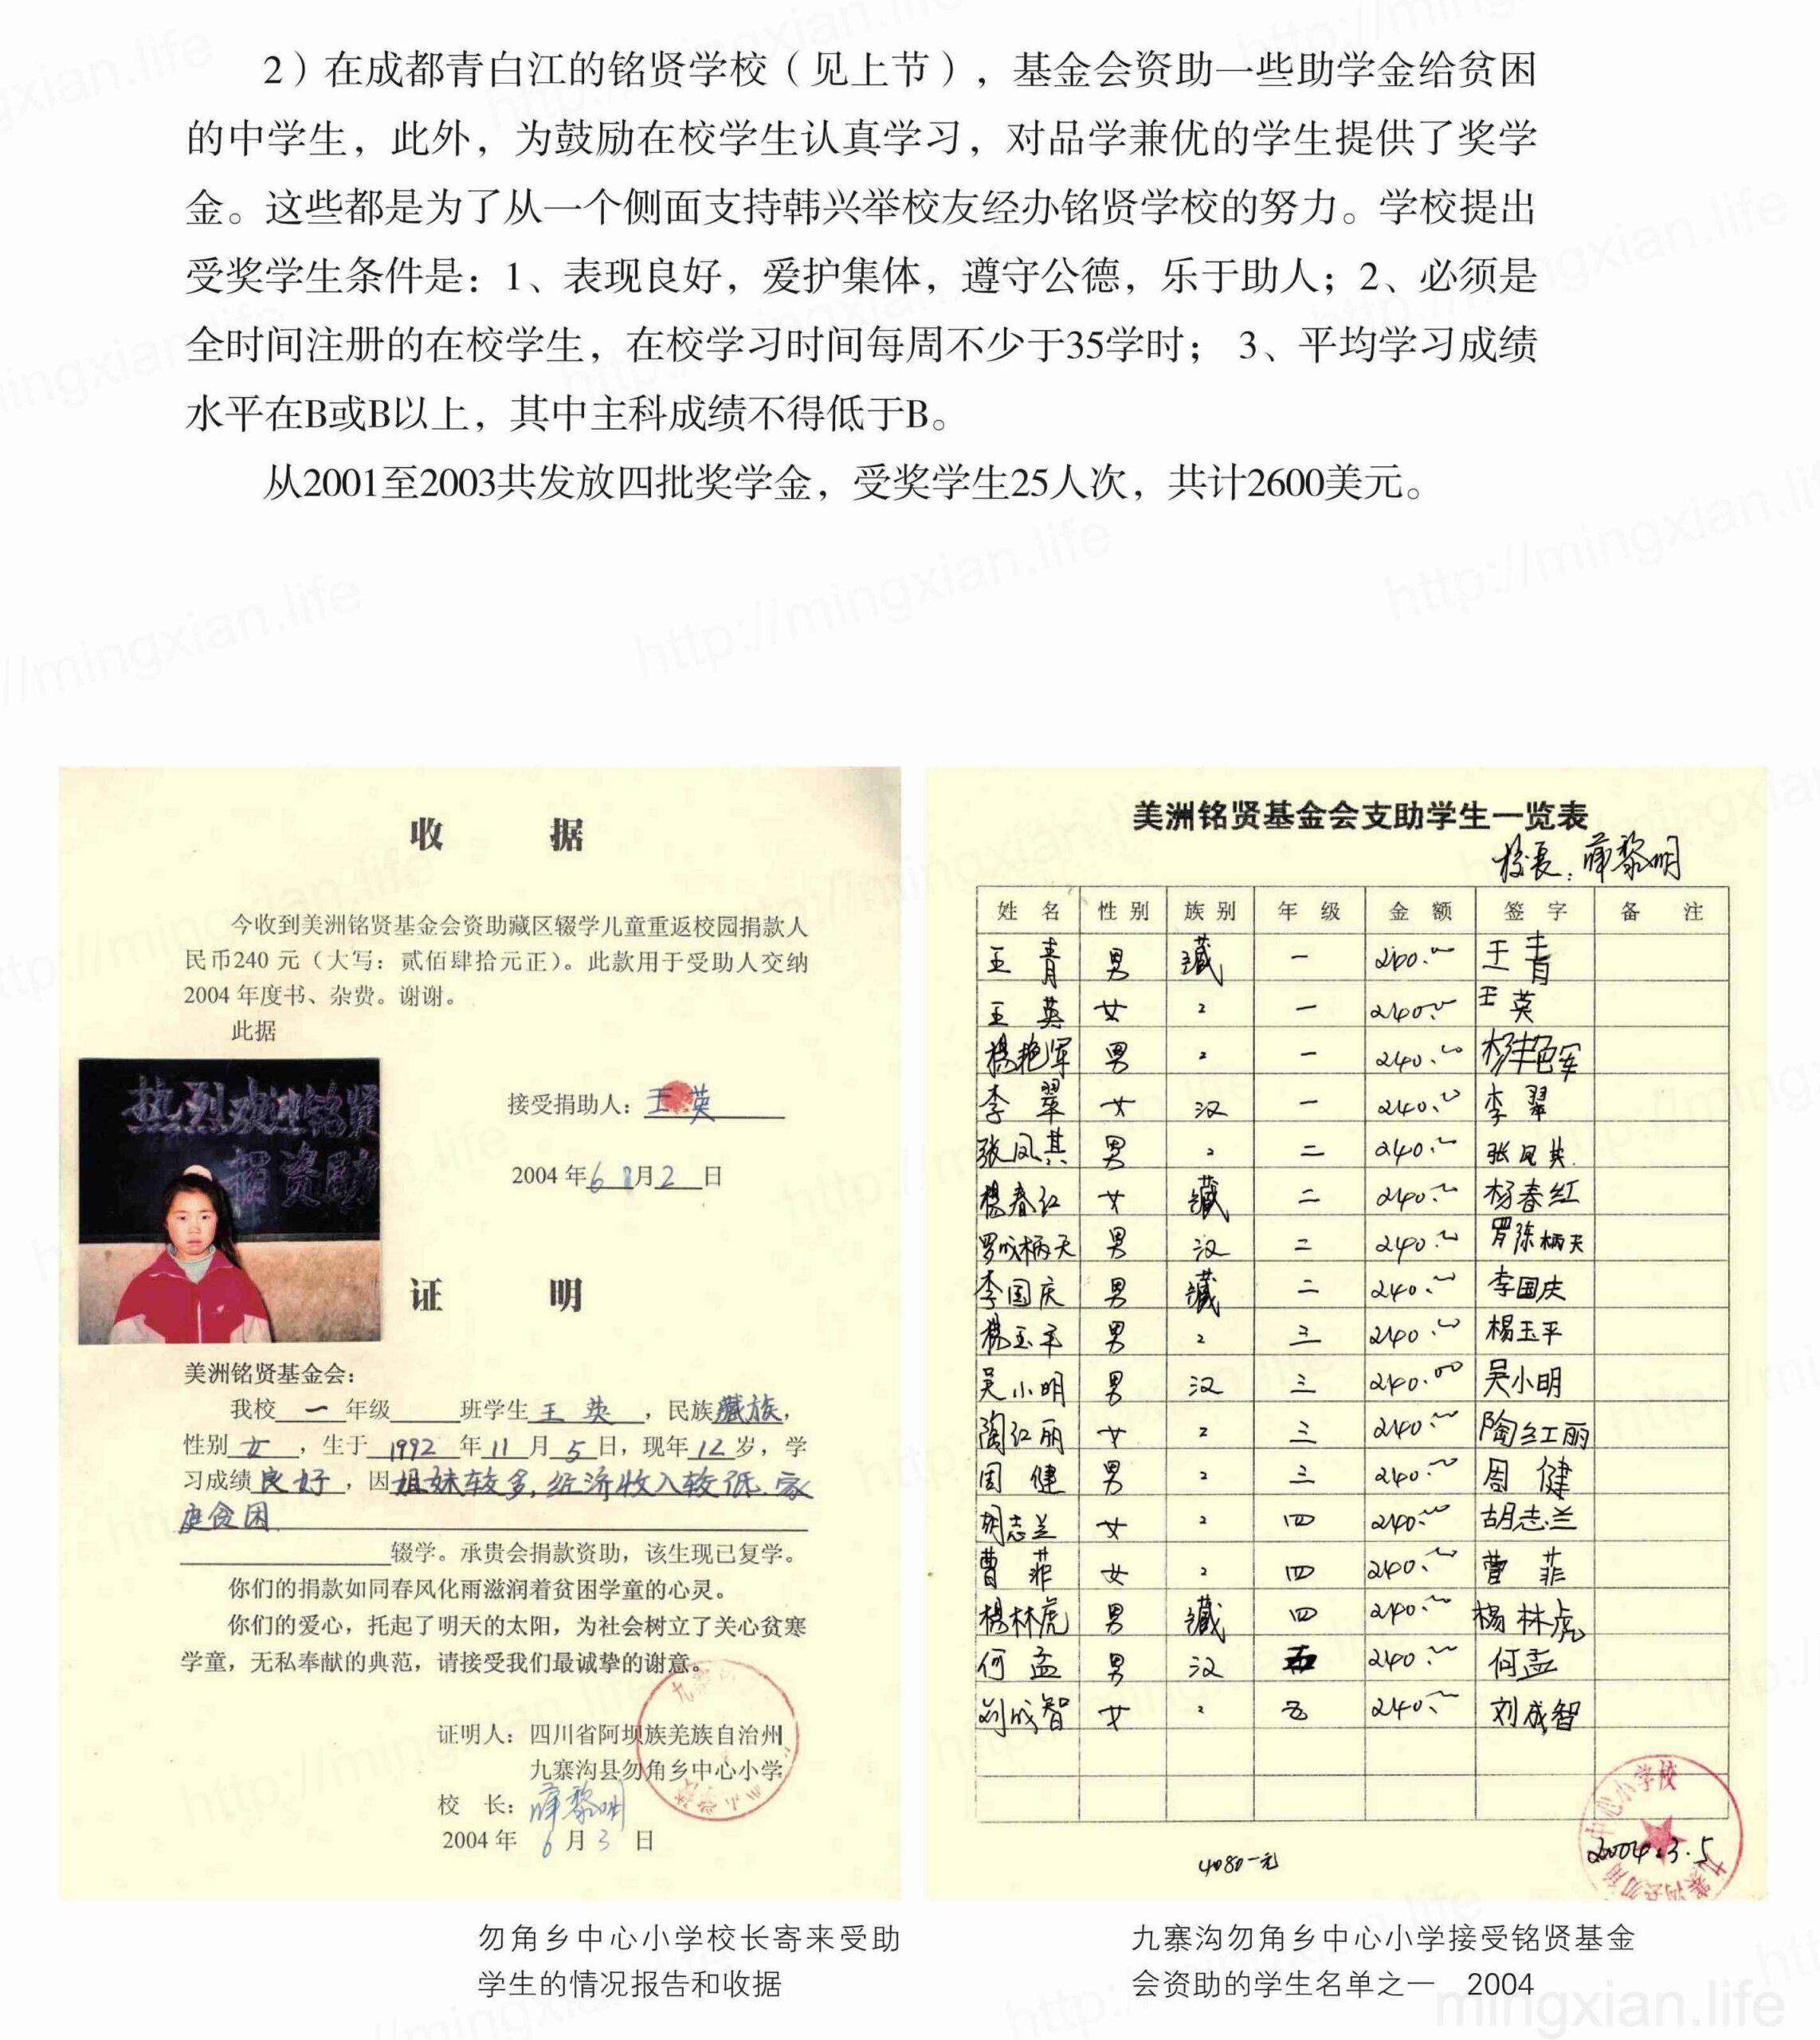 2）在成都青白江的铭贤学校（见上节），基金会资助一些助学金给贫困
的中学生，此外，为鼓励在校学生认真学习，对品学兼优的学生提供了奖学
金。这些都是为了从一个侧面支持韩兴举校友经办铭贤学校的努力。学校提出
受奖学生条件是：1、表现良好，爱护集体，遵守公德，乐于助人；2、必须是
全时间注册的在校学生，在校学习时间每周不少于35学时； 3、平均学习成绩
水平在B或B以上，其中主科成绩不得低于B。
从2001至2003共发放四批奖学金，受奖学生25人次，共计2600美元。
收 据
今收到美洲铭贤基金会资助藏区辍学儿童重返校园捐款人
民币240 元（大写：贰佰肆拾元正）。此款用于受助人交纳
2004 年度书、杂费。谢谢。
此据
热烈欢迎铭贤
捐资助
接受捐助人：王英
2004 年6月2日
证 明
美洲铭贤基金会：
我校一年级 班学生王英，民族藏族，
性别女，生于1992年11月5日，现年12岁，学
习成绩良好，因姐妹较多，经济收入较低、家
庭贫困
辍学。承贵会捐款资助，该生现已复学。
你们的捐款如同春风化雨滋润着贫困学童的心灵。
你们的爱心，托起了明天的太阳，为社会树立了关心贫寒
学童，无私奉献的典范，请接受我们最诚挚的谢意。
证明人：四川省阿坝族羌族自治州
九寨沟县勿角乡中心小学
校 长：薛黎明
2004 年 6 月 3 日
勿角乡中心小学校长寄来受助
学生的情况报告和收据
美洲铭贤基金会支助学生一览表
校长：薛黎明
姓 名 性 别 族 别 年 级 金 额 签 字 备 注
王 青 男 藏 一 240.00 王青
王 英 女 〃 一 240.00 王英
杨艳军 男 〃 一 240.00 杨艳军
李 翠 女 汉 一 240.00 李翠
张凤其 男 〃 二 240.00 张凤其
杨春红 女 藏 二 240.00 杨春红
男 汉 二 240.00 罗陈柄天
李国庆 男 藏 二 240.00 李国庆
杨玉平 男 〃 三 240.00 杨玉平
吴小明 男 汉 三 240.00 吴小明
陶红丽 女 〃 三 240.00 陶红丽
周 健 男 〃 三 240.00 周健
胡志兰 女 〃 四 240.00 胡志兰
曹 菲 女 〃 四 240.00 曹菲
杨林虎 男 藏 四 240.00 杨林虎
何 孟 男 汉 五 240.00 何孟
刘成智 女 〃 五 240.00 刘成智
4080元
中心小学校
2004.3.5
九寨沟勿角乡中心小学接受铭贤基金
会资助的学生名单之一 2004
mingxian.life